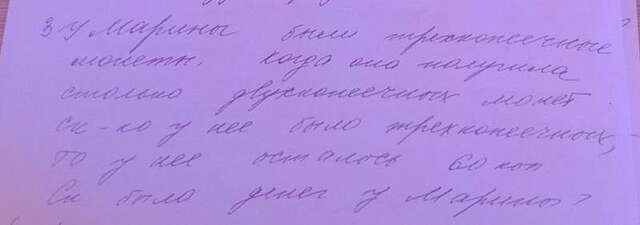 3 У Марины были трехкопеечные
монеты. Когда она получила
столько двухкопеечных монет
Ск-ко у нее было трехкопеечных,
то у нее осталось 60 коп
Ск было денег у Марины?